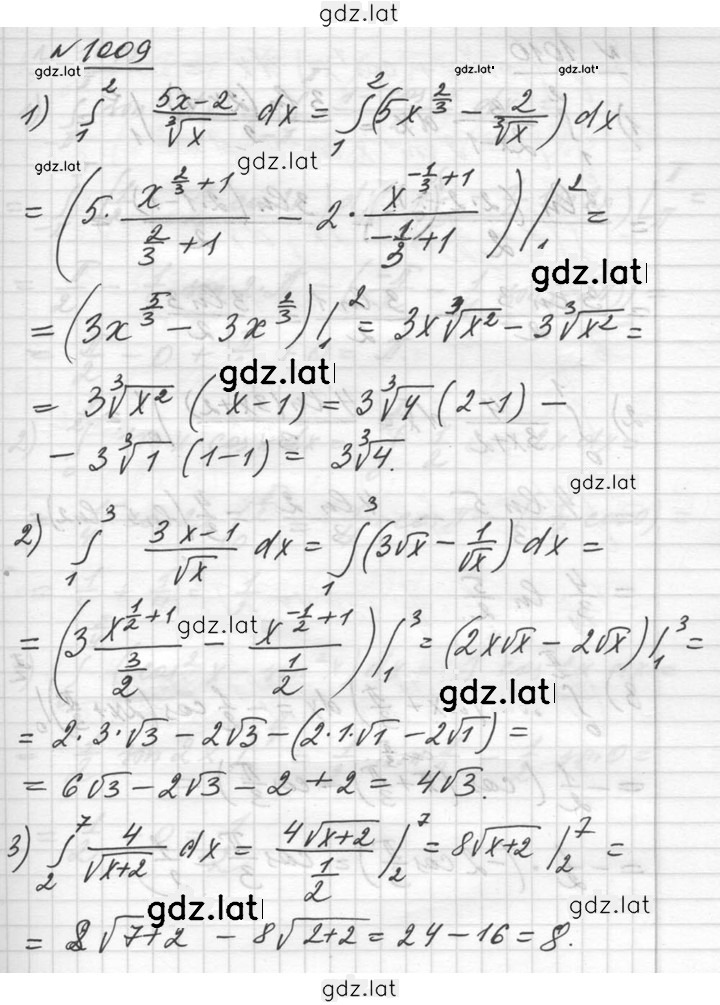 gdz.lat
№ 1009
gdz.lat gdz.lat gdz.lat
1) ∫₁² (5x-2)/∛x dx = ∫₁² (5x^(2/3) - 2/∛x) dx
gdz.lat gdz.lat
= (5 · x^(2/3+1)/(2/3+1) - 2 · x^(-1/3+1)/(-1/3+1)) |₁² =
gdz.lat
= (3x^(5/3) - 3x^(2/3)) |₁² = 3x∛x² - 3∛x² =
gdz.lat
= 3∛x² (x-1) = 3∛4 (2-1) -
- 3∛1 (1-1) = 3∛4.
gdz.lat
2) ∫₁³ (3x-1)/√x dx = ∫₁³ (3√x - 1/√x) dx =
gdz.lat
= (3 x^(1/2+1)/(3/2) - x^(-1/2+1)/(1/2)) |₁³ = (2x√x - 2√x) |₁³ =
gdz.lat
= 2·3·√3 - 2√3 - (2·1·√1 - 2√1) =
= 6√3 - 2√3 - 2 + 2 = 4√3.
3) ∫₂⁷ 4/√(x+2) dx = 4√(x+2)/(1/2) |₂⁷ = 8√(x+2) |₂⁷ =
gdz.lat gdz.lat
= 8√(7+2) - 8√(2+2) = 24 - 16 = 8.
gdz.lat